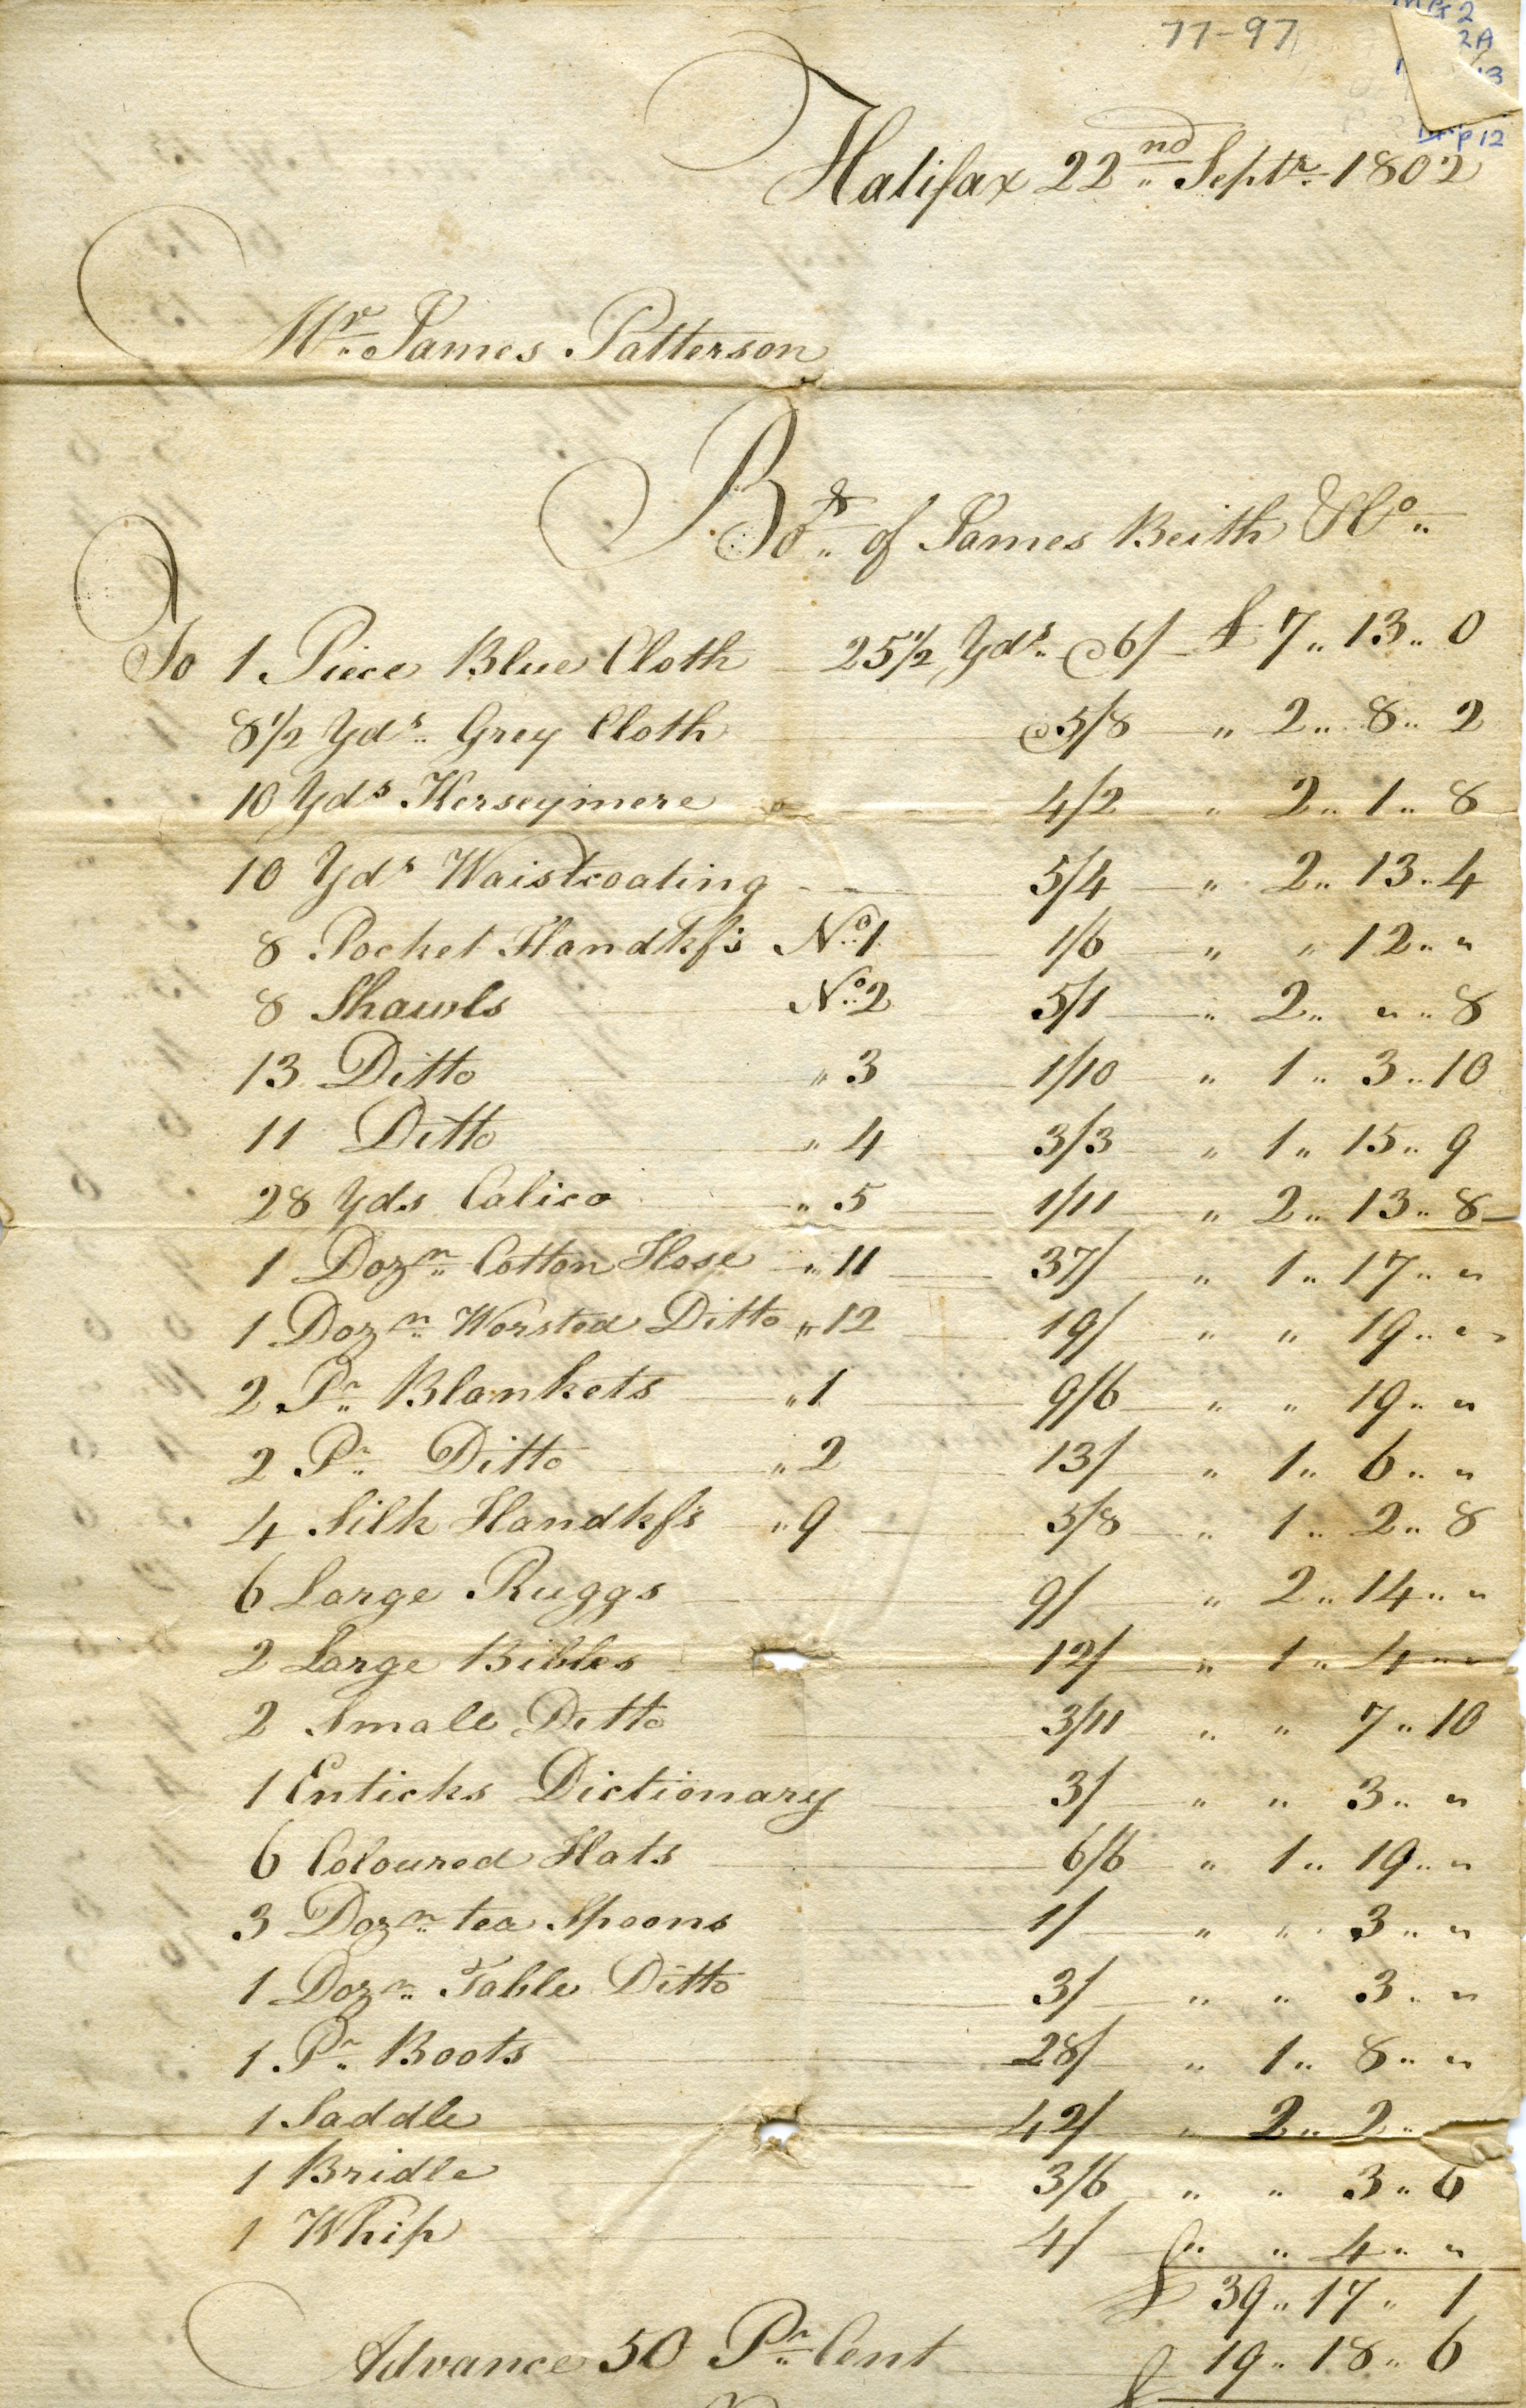 77-97
2
2A
13
p 12
Halifax 22nd Septr 1802
Mr James Patterson
Bot of James Beith & Co
To 1 Piece Blue Cloth 25 1/2 Yds @ 6/ £ 7 " 13 " 0
8 1/2 Yds Grey Cloth @ 5/8 " 2 " 8 " 2
10 Yds Kerseymere 4/2 " 2 " 1 " 8
10 Yds Waistcoating 5/4 " 2 " 13 " 4
8 Pocket Handkfs No 1 1/6 " " 12 " "
8 Shawls No 2 5/1 " 2 " " " 8
13 Ditto " 3 1/10 " 1 " 3 " 10
11 Ditto " 4 3/3 " 1 " 15 " 9
28 Yds Calico " 5 1/11 " 2 " 13 " 8
1 Dozn Cotton Hose " 11 37/ " 1 " 17 " "
1 Dozn Worsted Ditto " 12 19/ " " 19 " "
2 Pr Blankets " 1 9/6 " " 19 " "
2 Pr Ditto " 2 13/ " 1 " 6 " "
4 Silk Handkfs " 9 5/8 " 1 " 2 " 8
6 Large Ruggs 9/ " 2 " 14 " "
2 Large Bibles 12/ " 1 " 4 " "
2 Small Ditto 3/11 " " 7 " 10
1 Enticks Dictionary 3/ " " 3 " "
6 Coloured Hats 6/6 " 1 " 19 " "
3 Dozn tea Spoons 1/ " " 3 " "
1 Dozn Table Ditto 3/ " " 3 " "
1 Pr Boots 28/ " 1 " 8 " "
1 Saddle 42/ " 2 " 2 "
1 Bridle 3/6 " " 3 " 6
1 Whip 4/ " " 4 " "
£ 39 " 17 " 1
Advance 50 Pr Cent 19 " 18 " 6